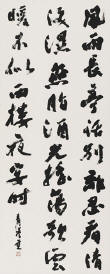 風雨長亭話別離忍看清
淚濕燕脂酒光搖蕩歌雲
暖不似西樓夜宴時